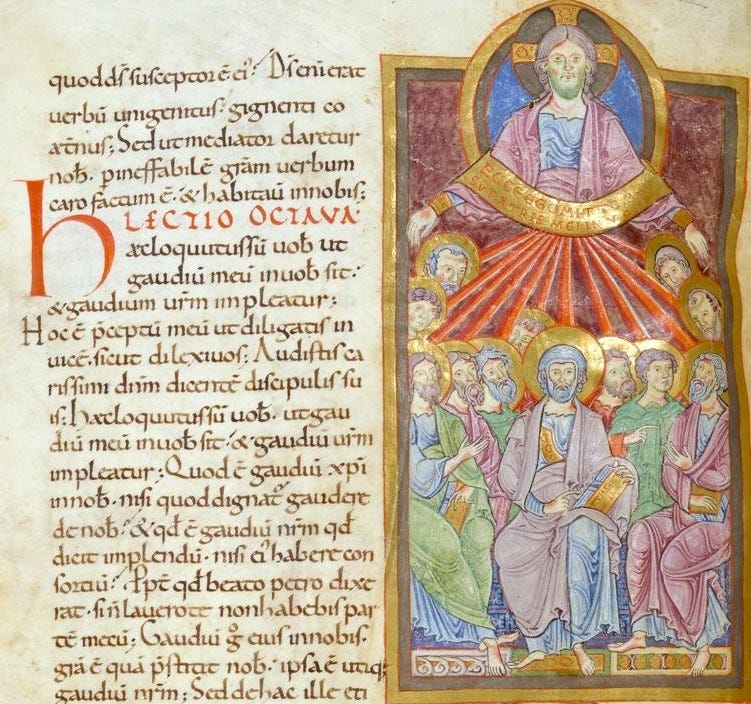 quod d̄s susceptor ē ei᾽? D̄s enī erat
verbū unigenitus· gignenti co
æt̄nus; Sed ut mediator daretur
nob̄· p ineffabilē grām verbum
caro factum ē· & habitaū in nobis;
LECTIO OCTAVA·
hæc loquutus sū vob̄ ut
gaudiū meū in vob̄ sit·
& gaudium vr̄m impleatur;
Hoc ē p̄ceptū meū ut diligatis in
vicē· sicut dilexi vos; Audistis ca
rissimi dn̄m dicentē discipulis su
is; Hæc loquutus sū vob̄· ut gau
diū meū in vob̄ sit· & gaudiū vr̄m
impleatur; Quod ē gaudiū xp̄i
in nob̄· nisi quod dignat᾽ gaudere
de nob̄? & qd̄ ē gaudiū nr̄m qd̄
dicit implendū· nisi ei᾽ habere con
sortiū? Ppt̄ qd̄ beato petro dixe
rat· si n̄ lavero te non habebis par
tē mecū; Gaudiū g̊ eius in nobis·
grā ē quā p̄stitit nob̄· ipsa ē utiq;
gaudiū nr̄m; Sed de hac ille eti
ECCE EGO
MEI IN